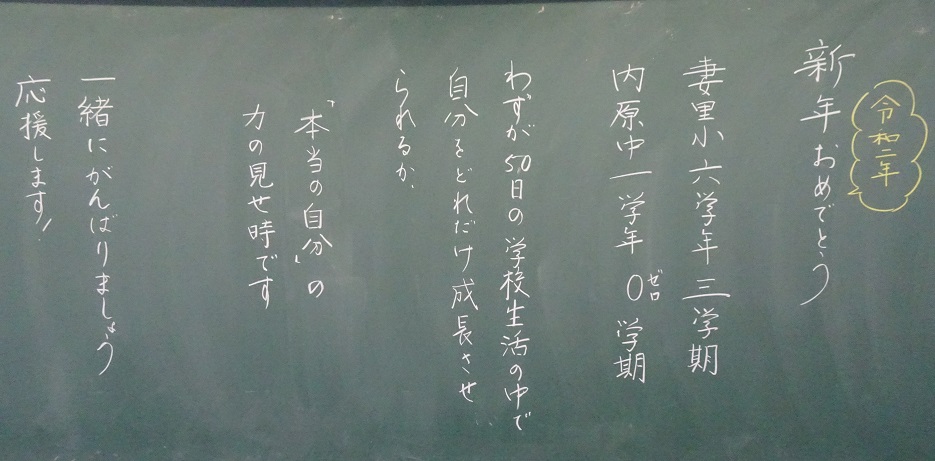 令和二年
新年おめでとう
妻里小六学年三学期
内原中一学年0学期
ゼロ
わずか50日の学校生活の中で
自分をどれだけ成長させ
られるか、
「本当の自分」の
力の見せ時です
一緒にがんばりましょう
応援します!